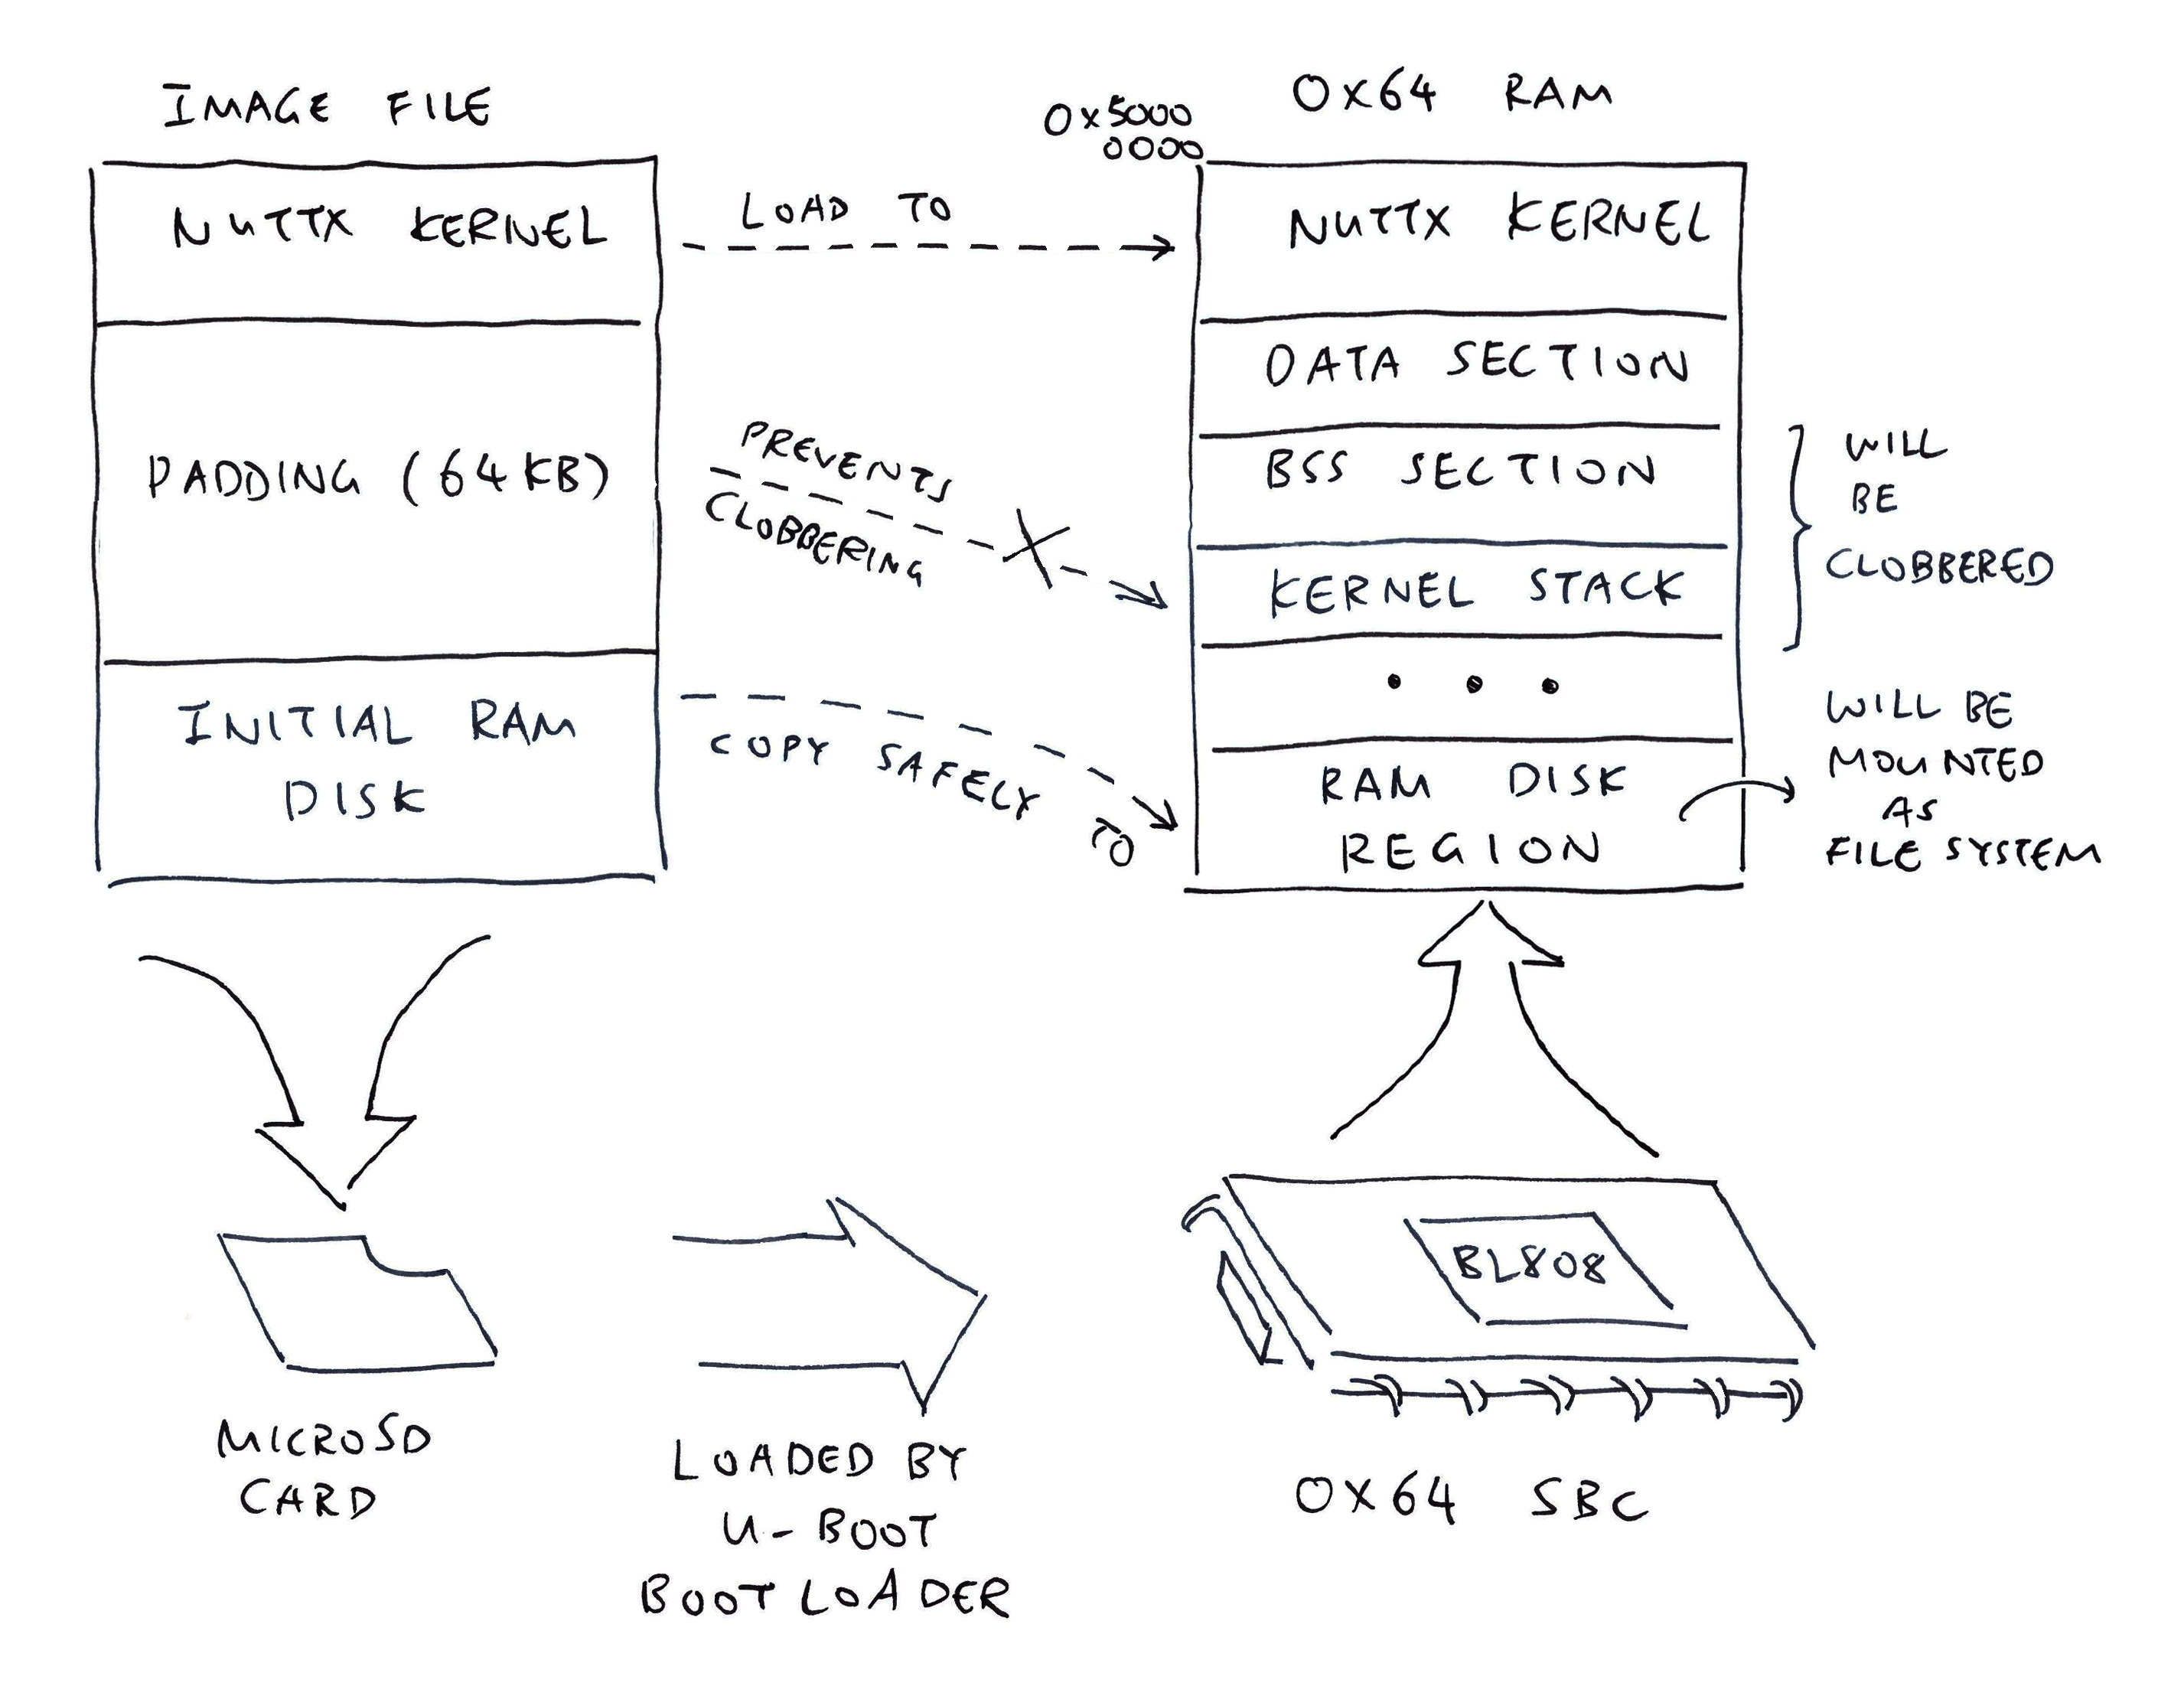 IMAGE FILE
NUTTX KERNEL
PADDING (64KB)
INITIAL RAM
DISK
LOAD TO
PREVENTS
CLOBBERING
COPY SAFELY TO
0x5000
0000
OX64 RAM
NUTTX KERNEL
DATA SECTION
BSS SECTION
KERNEL STACK
• • •
RAM DISK
REGION
WILL
BE
CLOBBERED
WILL BE
MOUNTED
AS
FILE SYSTEM
MICROSD
CARD
LOADED BY
U-BOOT
BOOTLOADER
BL808
OX64 SBC